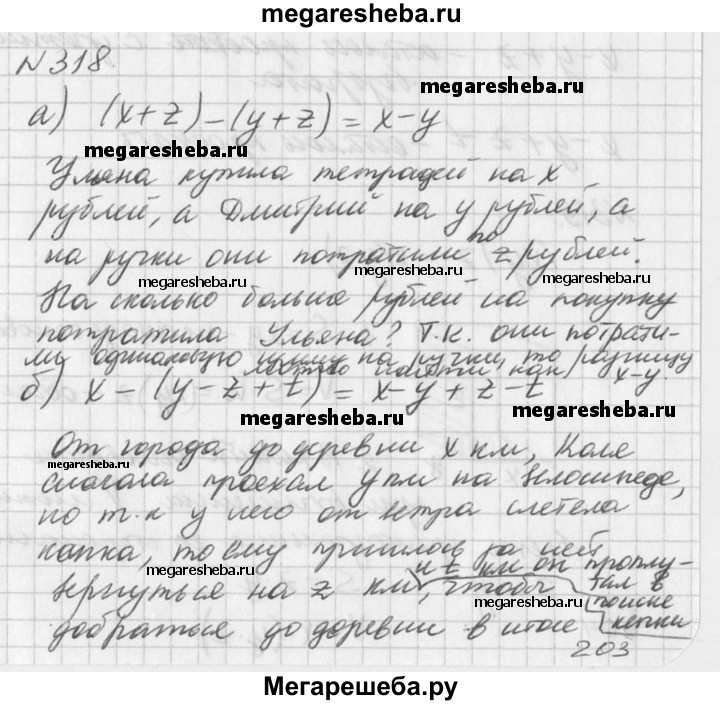 megaresheba.ru
№318.
megaresheba.ru
а) (x+z)-(y+z)=x-y
megaresheba.ru
Ульяна купила тетрадей на x
рублей, а Дмитрий на y рублей, а
на ручки они потратили по z рублей.
megaresheba.ru megaresheba.ru
На сколько больше рублей на покупку
потратила Ульяна? Т.к. они потрати-
му одинаковую сумму на ручки, то разницу
можно найти как x-y.
б) x-(y-z+t)=x-y+z-t
megaresheba.ru megaresheba.ru
От города до деревни x км, Коля
megaresheba.ru
сначала проехал y км на велосипеде,
но т.к у него от ветра слетела
кепка, то ему пришлось за ней
megaresheba.ru
вернуться на z км, и t км он проплу-
тал в поиске кепки
чтобы
megaresheba.ru
добраться до деревни в итоге
203
Мегарешеба.ру